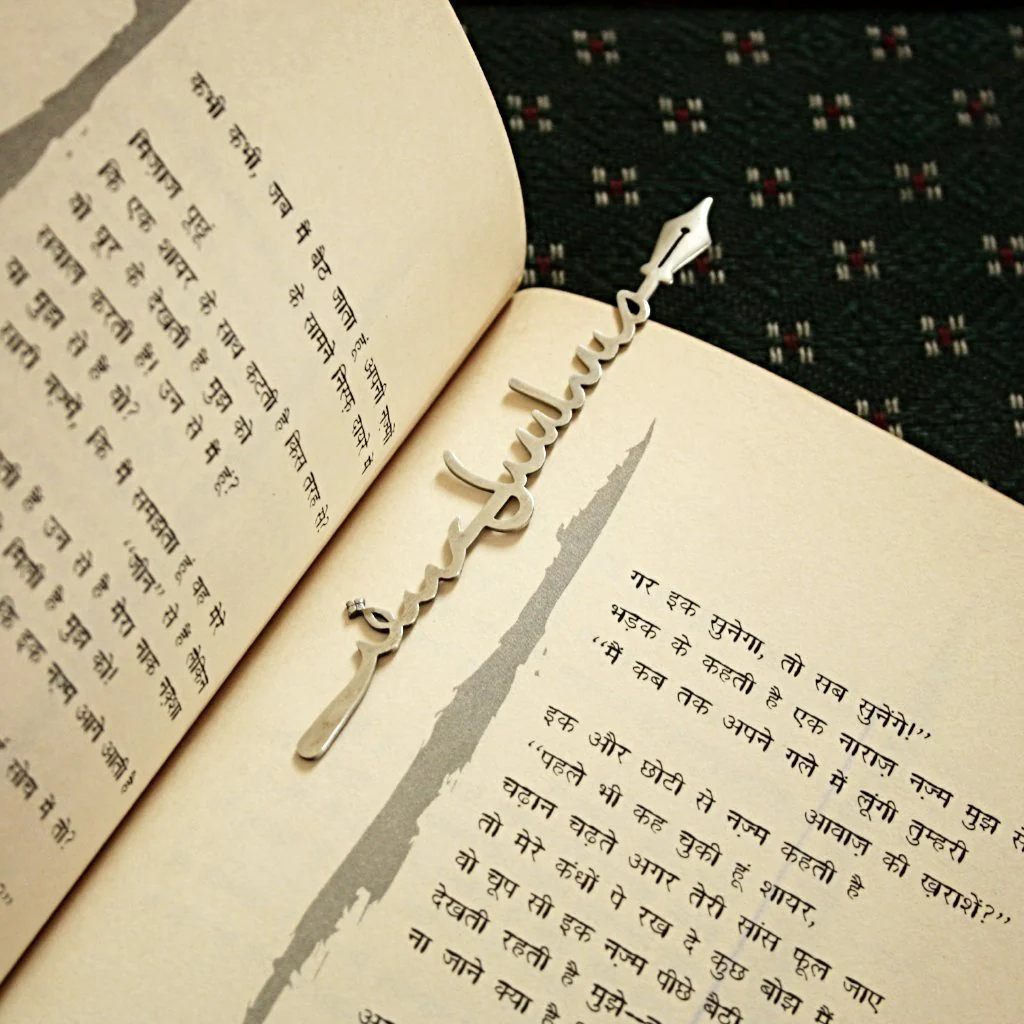 कभी कभी, जब मैं बैठ जाता हूं अपनी नज़्मों
के सामने निस्फ़ दायरे में
मिज़ाज पूछूं
कि एक शायर के साथ कटती है किस तरह से?
वो घूर के देखती हैं मुझ को
सवाल करती हैं! उन से मैं हूं?
या मुझ से हैं वो?
सारी नज़्में, कि मैं समझता हूं वह मेरे
“जीन” से हैं लेकिन
है उन से है मेरा नाक नक़्शा
मिली है मुझ को!
इक नज़्म आगे आती है
सोच में तो?
गर इक सुनेगा, तो सब सुनेंगे!”
भड़क के कहती है एक नाराज़ नज़्म मुझ से
“मैं कब तक अपने गले में लूंगी तुम्हरी
आवाज़ की ख़राशें?”
इक और छोटी से नज़्म कहती है
“पहले भी कह चुकी हूं शायर,
चढ़ान चढ़ते अगर तेरी सांस फूल जाए
तो मेरे कंधों पे रख दे कुछ बोझ मैं
वो चूप सी इक नज़्म पीछे बैठी
देखती रहती है मुझे—
ना जाने क्या है